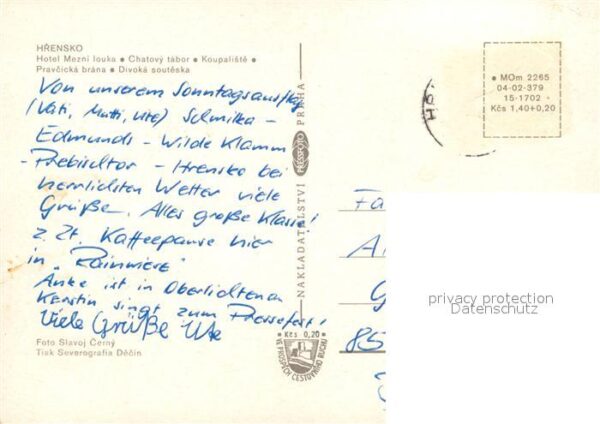 HŘENSKO
Hotel Mezní louka • Chatový tábor • Koupaliště •
Pravčická brána • Divoká soutěska
Von unserem Sonntagsausflug
(Vati, Mutti, Ute) Schmilka -
Edmunds - Wilde Klamm
- Prebischtor - Hrensko bei
herrlichsten Wetter viele
Grüße. Alles große Klasse!
z. Zt. Kaffeepause hier
in "Rainwiese"
Anke ist in Oberlichtenau
Kerstin singt zum Pressefest!
Viele Grüße Ute
Foto Slavoj Černý
Tisk Severografia Děčín
NAKLADATELSTVÍ PRESSFOTO PRAHA
• Kčs 0,20 •
VE PROSPĚCH CESTOVNÍHO RUCHU
• MOm 2265
04-02-379
15-1702 •
Kčs 1,40+0,20
Fa
A
G
85
privacy protection
Datenschutz